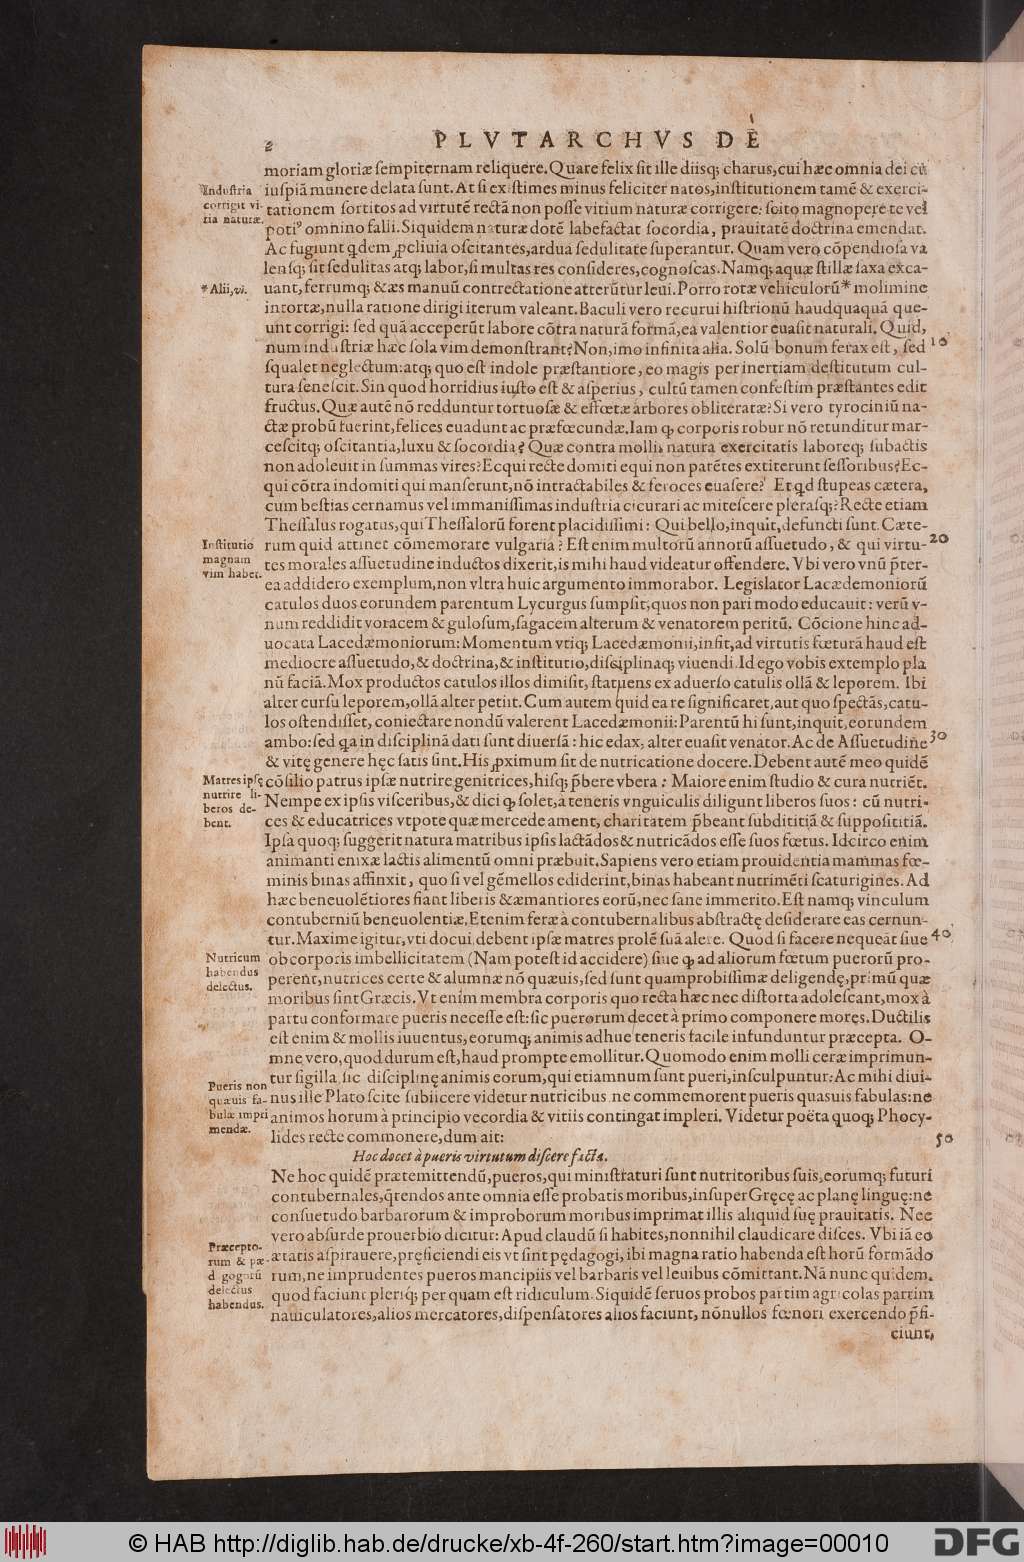 2 PLVTARCHVS DE
moriam gloriæ ſempiternam reliquere. Quare felix ſit ille diisq; charus, cui hæc omnia dei cũ
iuſpiã munere delata ſunt. At ſi exiſtimes minus feliciter natos, inſtitutionem tamẽ & exerci-
tationem ſortitos ad virtutẽ rectã non poſſe vitium naturæ corrigere: ſcito magnopere te vel
potiꝰ omnino falli. Siquidem naturæ dotẽ labefactat ſocordia, prauitatẽ doctrina emendat.
Induſtria
corrigit vi-
tia naturæ.
Ac fugiunt qdem ꝓcliuia oſcitantes, ardua ſedulitate ſuperantur. Quam vero cõpendioſa va
lenſq; ſit ſedulitas atq; labor, ſi multas res conſideres, cognoſcas. Namq; aquæ ſtillæ ſaxa exca-
uant, ferrumq; & æs manuũ contrectatione atterũtur leui. Porro rotæ vehiculorũ* molimine
* Alii, vi.
intortæ, nulla ratione dirigi iterum valeant. Baculi vero recurui hiſtrionũ haudquaquã que-
unt corrigi: ſed quã acceperũt labore cõtra naturã formã, ea valentior euaſit naturali. Quid,
num induſtriæ hæc ſola vim demonſtrant? Non, imo infinita alia. Solũ bonum ferax eſt, ſed 10
ſqualet neglectum: atq; quo eſt indole præſtantiore, eo magis per inertiam deſtitutum cul-
tura ſeneſcit. Sin quod horridius iuſto eſt & aſperius, cultũ tamen confeſtim præſtantes edit
fructus. Quæ autẽ nõ redduntur tortuoſæ & effœtæ arbores obliteratæ? Si vero tyrociniũ na-
ctæ probũ fuerint, felices euadunt ac præfœcundæ. Iam ꝙ corporis robur nõ retunditur mar-
ceſcitq; oſcitantia, luxu & ſocordia? Quæ contra mollis natura exercitatis laboreq; ſubactis
non adoleuit in ſummas vires? Ecqui recte domiti equi non parẽtes extiterunt ſeſſoribus? Ec-
qui cõtra indomiti qui manſerunt, nõ intractabiles & feroces euaſere? Et qd ſtupeas cætera,
cum beſtias cernamus vel immaniſſimas induſtria cicurari ac miteſcere pleraſq;? Recte etiam
Theſſalus rogatus, qui Theſſalorũ forent placidiſſimi: Qui bello, inquit, defuncti ſunt. Cæte-
rum quid attinet cõmemorare vulgaria? Eſt enim multorũ annorũ aſſuetudo, & qui virtu- 20
tes morales aſſuetudine inductos dixerit, is mihi haud videatur offendere. Vbi vero vnũ p̃ter-
Inſtitutio
magnam
vim habet.
ea addidero exemplum, non vltra huic argumento immorabor. Legiſlator Lacædemoniorũ
catulos duos eorundem parentum Lycurgus ſumpſit, quos non pari modo educauit: verũ v-
num reddidit voracem & guloſum, ſagacem alterum & venatorem peritũ. Cõcione hinc ad-
uocata Lacedæmoniorum: Momentum vtiq; Lacedæmonii, infit, ad virtutis fœturã haud eſt
mediocre aſſuetudo, & doctrina, & inſtitutio, diſciplinaq; viuendi. Id ego vobis extemplo pla
nũ faciã. Mox productos catulos illos dimiſit, ſtatuens ex aduerſo catulis ollã & leporem. Ibi
alter curſu leporem, ollã alter petiit. Cum autem quid ea re ſignificaret, aut quo ſpectãs, catu-
los oſtendiſſet, coniectare nondũ valerent Lacedæmonii: Parentũ hi ſunt, inquit, eorundem
ambo: ſed qa in diſciplinã dati ſunt diuerſã: hic edax, alter euaſit venator. Ac de Aſſuetudine 30
& vitę genere hęc ſatis ſint. His ꝓximum ſit de nutricatione docere. Debent autẽ meo quidẽ
cõſilio patrus ipſæ nutrire genitrices, hiſq; p̃bere vbera: Maiore enim ſtudio & cura nutriẽt.
Matres ipſę
nutrire li-
beros de-
bent.
Nempe ex ipſis viſceribus, & dici ꝙ ſolet, à teneris vnguiculis diligunt liberos ſuos: cũ nutri-
ces & educatrices vtpote quæ mercede ament, charitatem p̃beant ſubdititiã & ſuppoſititiã.
Ipſa quoq; ſuggerit natura matribus ipſis lactãdos & nutricãdos eſſe ſuos fœtus. Idcirco enim
animanti enixæ lactis alimentũ omni præbuit. Sapiens vero etiam prouidentia mammas fœ-
minis binas affinxit, quo ſi vel gẽmellos ediderint, binas habeant nutrimẽti ſcaturigines. Ad
hæc beneuolẽtiores fiant liberis & æmantiores eorũ, nec ſane immerito. Eſt namq; vinculum
contuberniũ beneuolentiæ. Etenim feræ à contubernalibus abſtractę deſiderare eas cernun-
tur. Maxime igitur, vti docui, debent ipſæ matres prolẽ ſuã alere. Quod ſi facere nequeãt ſiue 40
ob corporis imbellicitatem (Nam poteſt id accidere) ſiue ꝙ ad aliorum fœtum puerorũ pro-
perent, nutrices certe & alumnæ nõ quæuis, ſed ſunt quamprobiſſimæ deligendę, primũ quæ
Nutricum
habendus
delectus.
moribus ſint Græcis. Vt enim membra corporis quo recta hæc nec diſtorta adoleſcant, mox à
partu conformare pueris neceſſe eſt: ſic puerorum decet à primo componere mores. Ductilis
eſt enim & mollis iuuentus, eorumq; animis adhuc teneris facile infunduntur præcepta. O-
mne vero, quod durum eſt, haud prompte emollitur. Quomodo enim molli ceræ imprimun-
tur ſigilla, ſic diſciplinę animis eorum, qui etiamnum ſunt pueri, inſculpuntur: Ac mihi diui-
nus ille Plato ſcite ſubiicere videtur nutricibus ne commemorent pueris quaſuis fabulas: ne
Pueris non
quæuis fa-
bulæ impri
mendæ.
animos horum à principio vecordia & vitiis contingat impleri. Videtur poëta quoq; Phocy-
lides recte commonere, dum ait: 50
Hoc docet à pueris virtutum diſcere facta.
Ne hoc quidẽ prætemittendũ, pueros, qui miniſtraturi ſunt nutritoribus ſuis, eorumq; futuri
contubernales, q̃rendos ante omnia eſſe probatis moribus, inſuper Gręcę ac planę linguę: ne
conſuetudo barbarorum & improborum moribus imprimat illis aliquid ſuę prauitatis. Nec
vero abſurde prouerbio dicitur: Apud claudũ ſi habites, nonnihil claudicare diſces. Vbi iã eo
ætatis aſpirauere, pręficiendi eis vt ſint pędagogi, ibi magna ratio habenda eſt horũ formãdo
rum, ne imprudentes pueros mancipiis vel barbaris vel leuibus cõmittant. Nã nunc quidem,
Præcepto-
rum & pæ-
d gogorũ
delectus
habendus.
quod faciunt pleriq; per quam eſt ridiculum. Siquidẽ ſeruos probos partim agricolas partim
nauiculatores, alios mercatores, diſpenſatores alios faciunt, nõnullos fœnori exercendo p̃fi-
ciunt,
© HAB http://diglib.hab.de/drucke/xb-4f-260/start.htm?image=00010
DFG